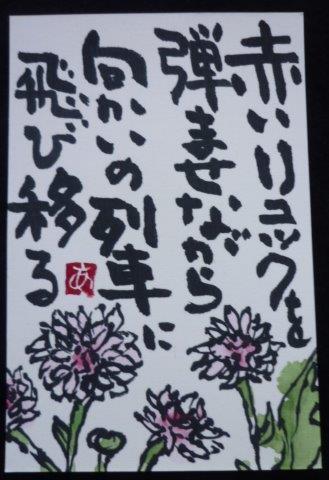 赤いリュックを
弾ませながら
向かいの列車に
飛び移る
あ